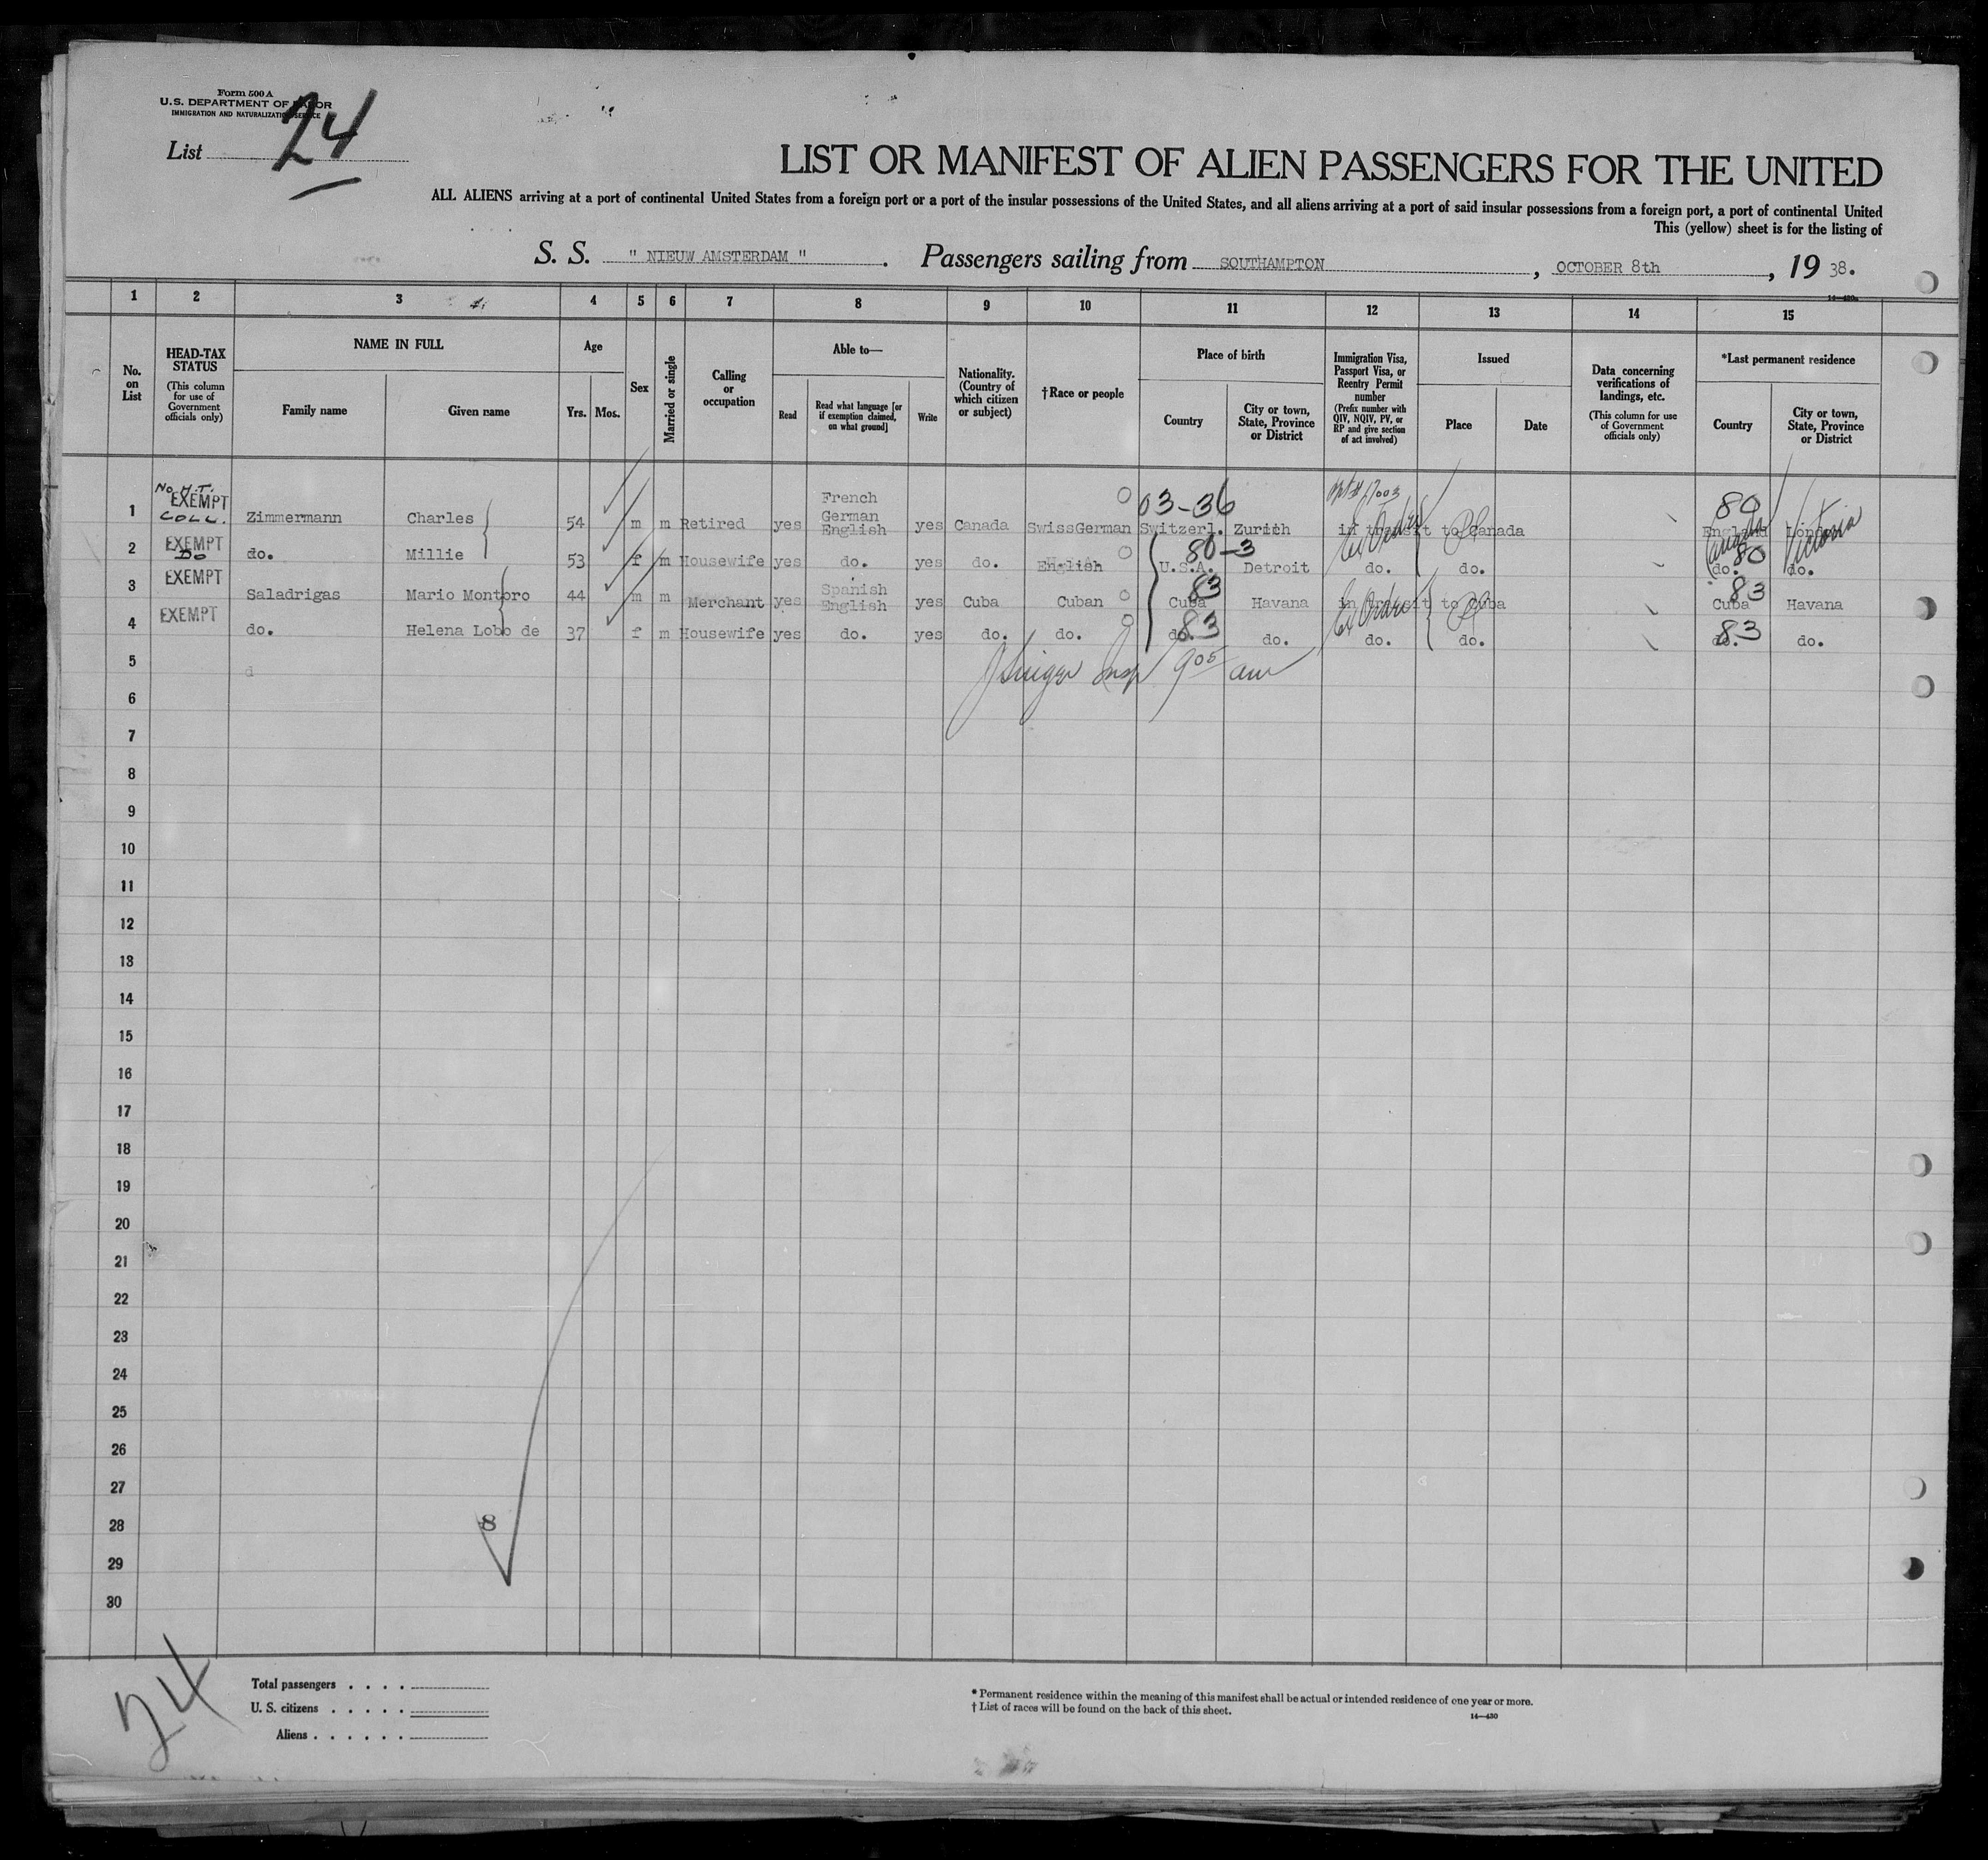 Form 500 A
U.S. DEPARTMENT OF LABOR
IMMIGRATION AND NATURALIZATION SERVICE
List 24
LIST OR MANIFEST OF ALIEN PASSENGERS FOR THE UNITED
ALL ALIENS arriving at a port of continental United States from a foreign port or a port of the insular possessions of the United States, and all aliens arriving at a port of said insular possessions from a foreign port, a port of continental United
This (yellow) sheet is for the listing of
S. S. " NIEUW AMSTERDAM ". Passengers sailing from SOUTHAMPTON, OCTOBER 8th, 19 38.
14—430a
1 2 3 4 5 6 7 8 9 10 11 12 13 14 15
No. on List
HEAD-TAX STATUS (This column for use of Government officials only)
NAME IN FULL
Family name Given name
Age
Yrs. Mos.
Sex
Married or single
Calling or occupation
Able to—
Read
Read what language [or if exemption claimed, on what ground]
Write
Nationality. (Country of which citizen or subject)
†Race or people
Place of birth
Country
City or town, State, Province or District
Immigration Visa, Passport Visa, or Reentry Permit number (Prefix number with QIV, NQIV, PV, or RP and give section of act involved)
Issued
Place Date
Data concerning verifications of landings, etc. (This column for use of Government officials only)
*Last permanent residence
Country
City or town, State, Province or District
No H.T.
1 EXEMPT COLL. Zimmermann Charles 54 m m Retired yes French German English yes Canada SwissGerman 03-36 Switzerl. Zurich in transit to Canada 80 England London Canada Victoria
2 EXEMPT Do do. Millie 53 f m Housewife yes do. yes do. English 80-3 U.S.A. Detroit do. do. 80 do. do.
3 EXEMPT Saladrigas Mario Montoro 44 m m Merchant yes Spanish English yes Cuba Cuban 83 Cuba Havana in transit to Cuba 83 Cuba Havana
4 EXEMPT do. Helena Lobo de 37 f m Housewife yes do. yes do. do. 83 do. do. do. do. 83 do. do.
5 d
Insp 9 05 am
6
7
8
9
10
11
12
13
14
15
16
17
18
19
20
21
22
23
24
25
26
27
28 8
29
30
24
Total passengers . . . .
U. S. citizens . . . . .
Aliens . . . . . .
* Permanent residence within the meaning of this manifest shall be actual or intended residence of one year or more.
† List of races will be found on the back of this sheet.
14—430